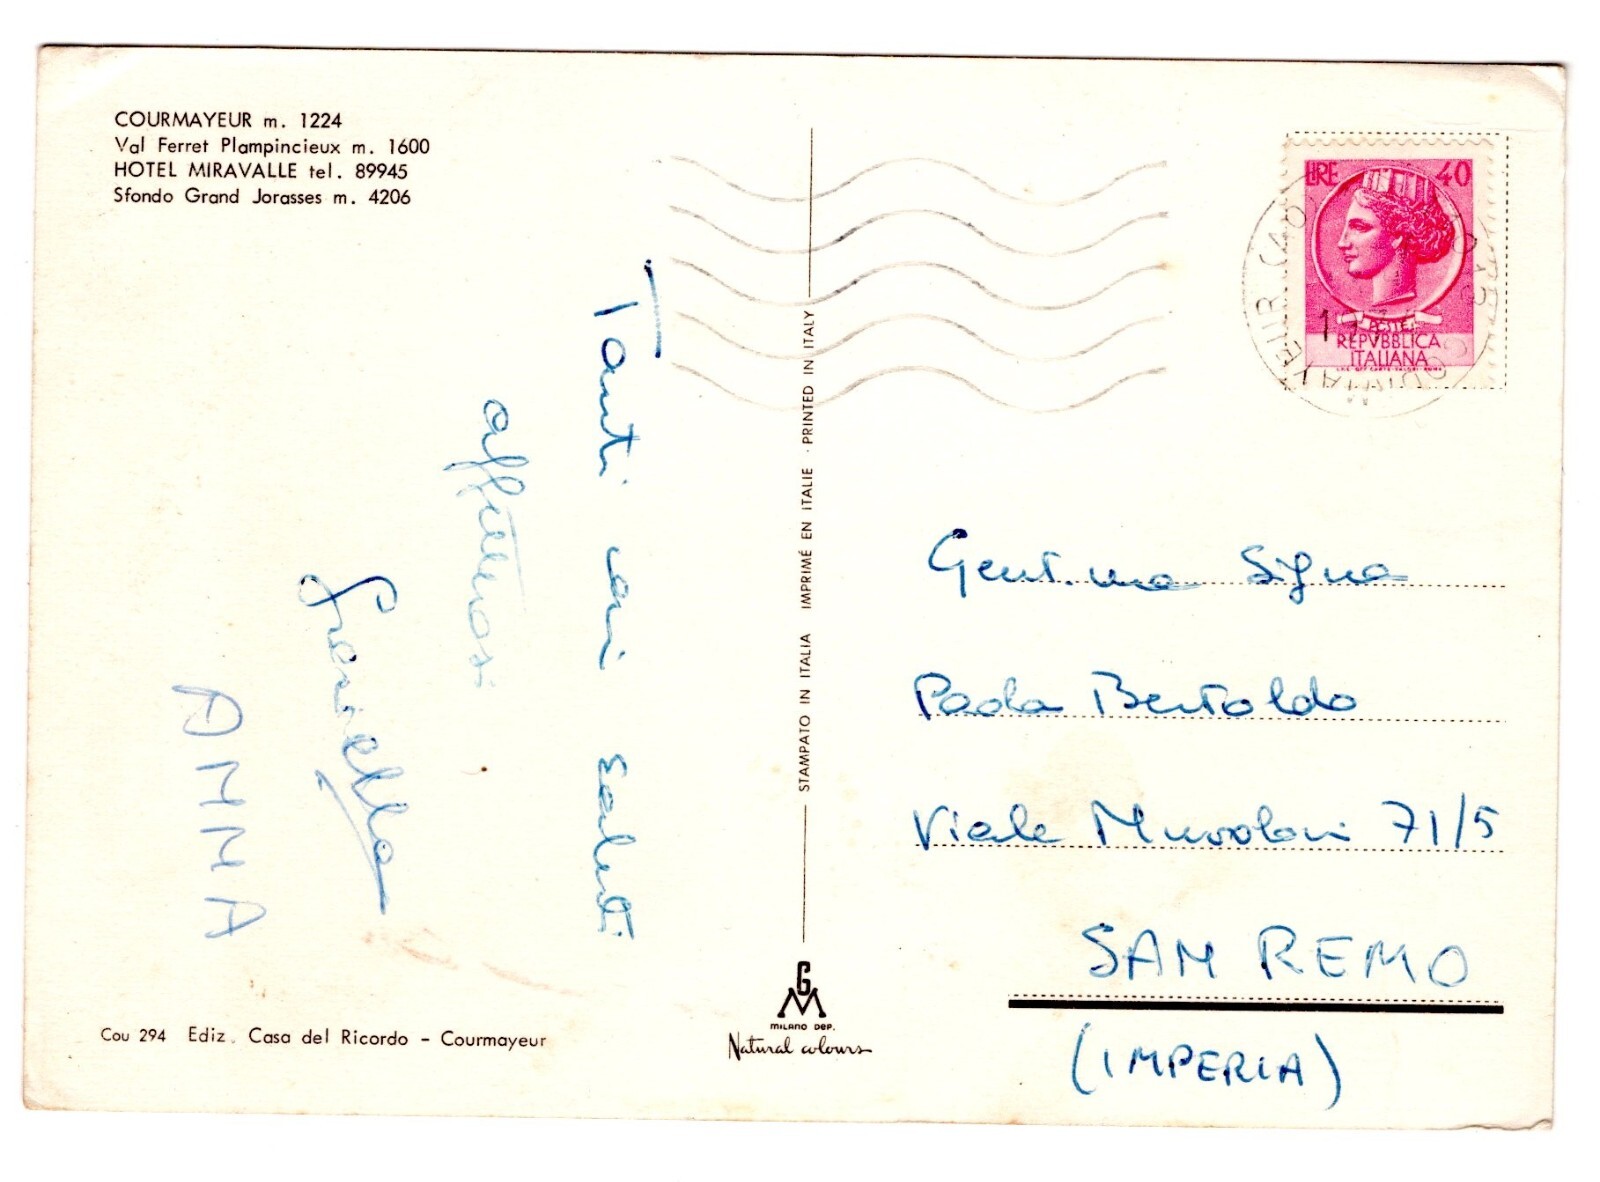 COURMAYEUR m. 1224
Val Ferret Plampincieux m. 1600
HOTEL MIRAVALLE tel. 89945
Sfondo Grand Jorasses m. 4206
Tanti cari saluti
affettuosi
Graziella
ANNA
Cou 294 Ediz. Casa del Ricordo - Courmayeur
STAMPATO IN ITALIA IMPRIMÉ EN ITALIE - PRINTED IN ITALY
GM
MILANO DEP.
Natural colours
LIRE 40
POSTE
REPVBBLICA
ITALIANA
COURMAYEUR (AO)
Gent.ma Sig.na
Paola Bertoldo
Viale 71/5
SAN REMO
(IMPERIA)